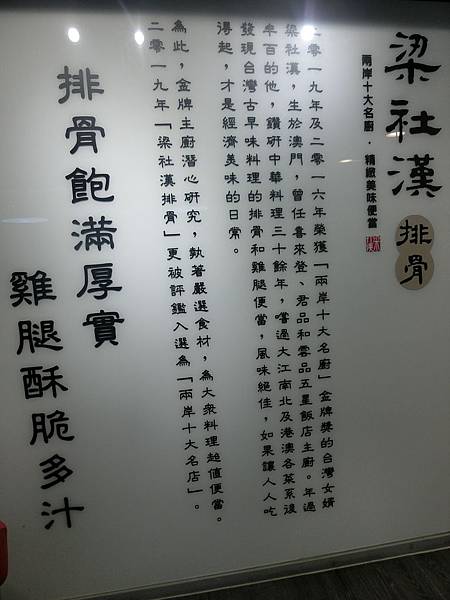 梁社漢
排骨
兩岸十大名廚．精緻美味便當
二零一九年及二零一六年榮獲「兩岸十大名廚」金牌獎的台灣女婿
梁社漢，生於澳門，曾任喜來登、君品和雲品五星飯店主廚。年過
半百的他，鑽研中華料理三十餘年，嚐遍大江南北及港澳各菜系後
發現台灣古早味料理的排骨和雞腿便當，風味絕佳，如果讓人人吃
得起，才是經濟美味的日常。
為此，金牌主廚潛心研究，執著嚴選食材，為大眾料理超值便當。
二零一九年「梁社漢排骨」更被評鑑入選為「兩岸十大名店」。
排骨飽滿厚實
雞腿酥脆多汁